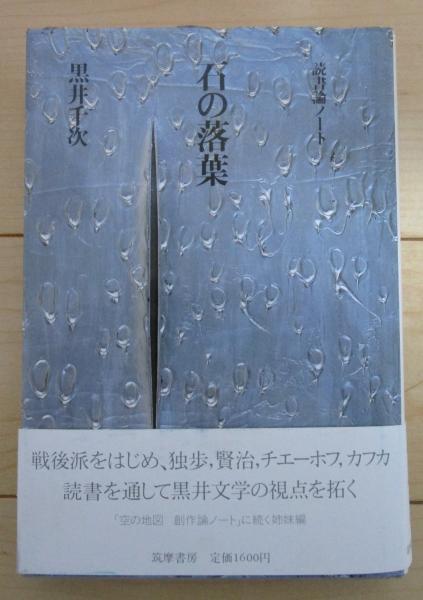 読書論ノート
石の落葉
黒井千次
戦後派をはじめ、独歩,賢治,チエーホフ,カフカ
読書を通して黒井文学の視点を拓く
「空の地図 創作論ノート」に続く姉妹編
筑摩書房 定価1600円